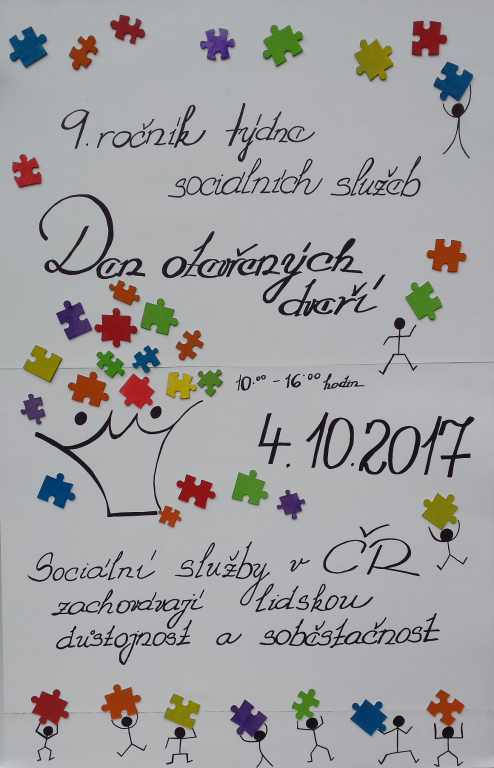 9. ročník týdne
sociálních služeb
Den otevřených
dveří
10.⁰⁰ - 16.⁰⁰ hodin
4.10.2017
Sociální služby v ČR
zachovávají lidskou
důstojnost a soběstačnost